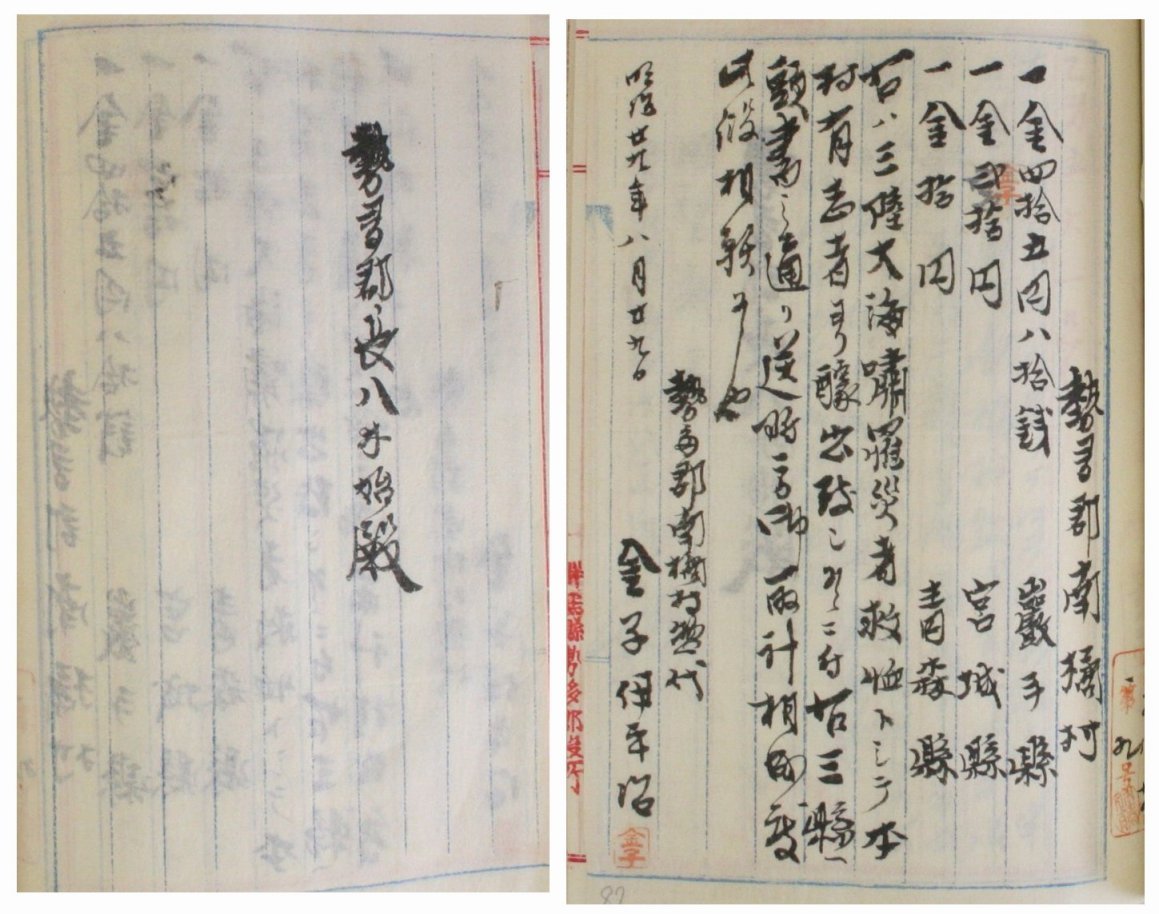 勢多郡南橘村
一金四拾五円八拾銭 巖手縣
一金弐拾円 宮城縣
一金拾円 青森縣
右ハ三陸大海嘯罹災者救恤トシテ本
村有志者ヨリ醵出致シ候ニ付右三縣ヘ
願書之通リ送附方御取計相成度
此段相願申候也
明治廿九年八月廿九日
勢多郡南橘村惣代
金子伊平治
金子
勢多郡長八木始殿